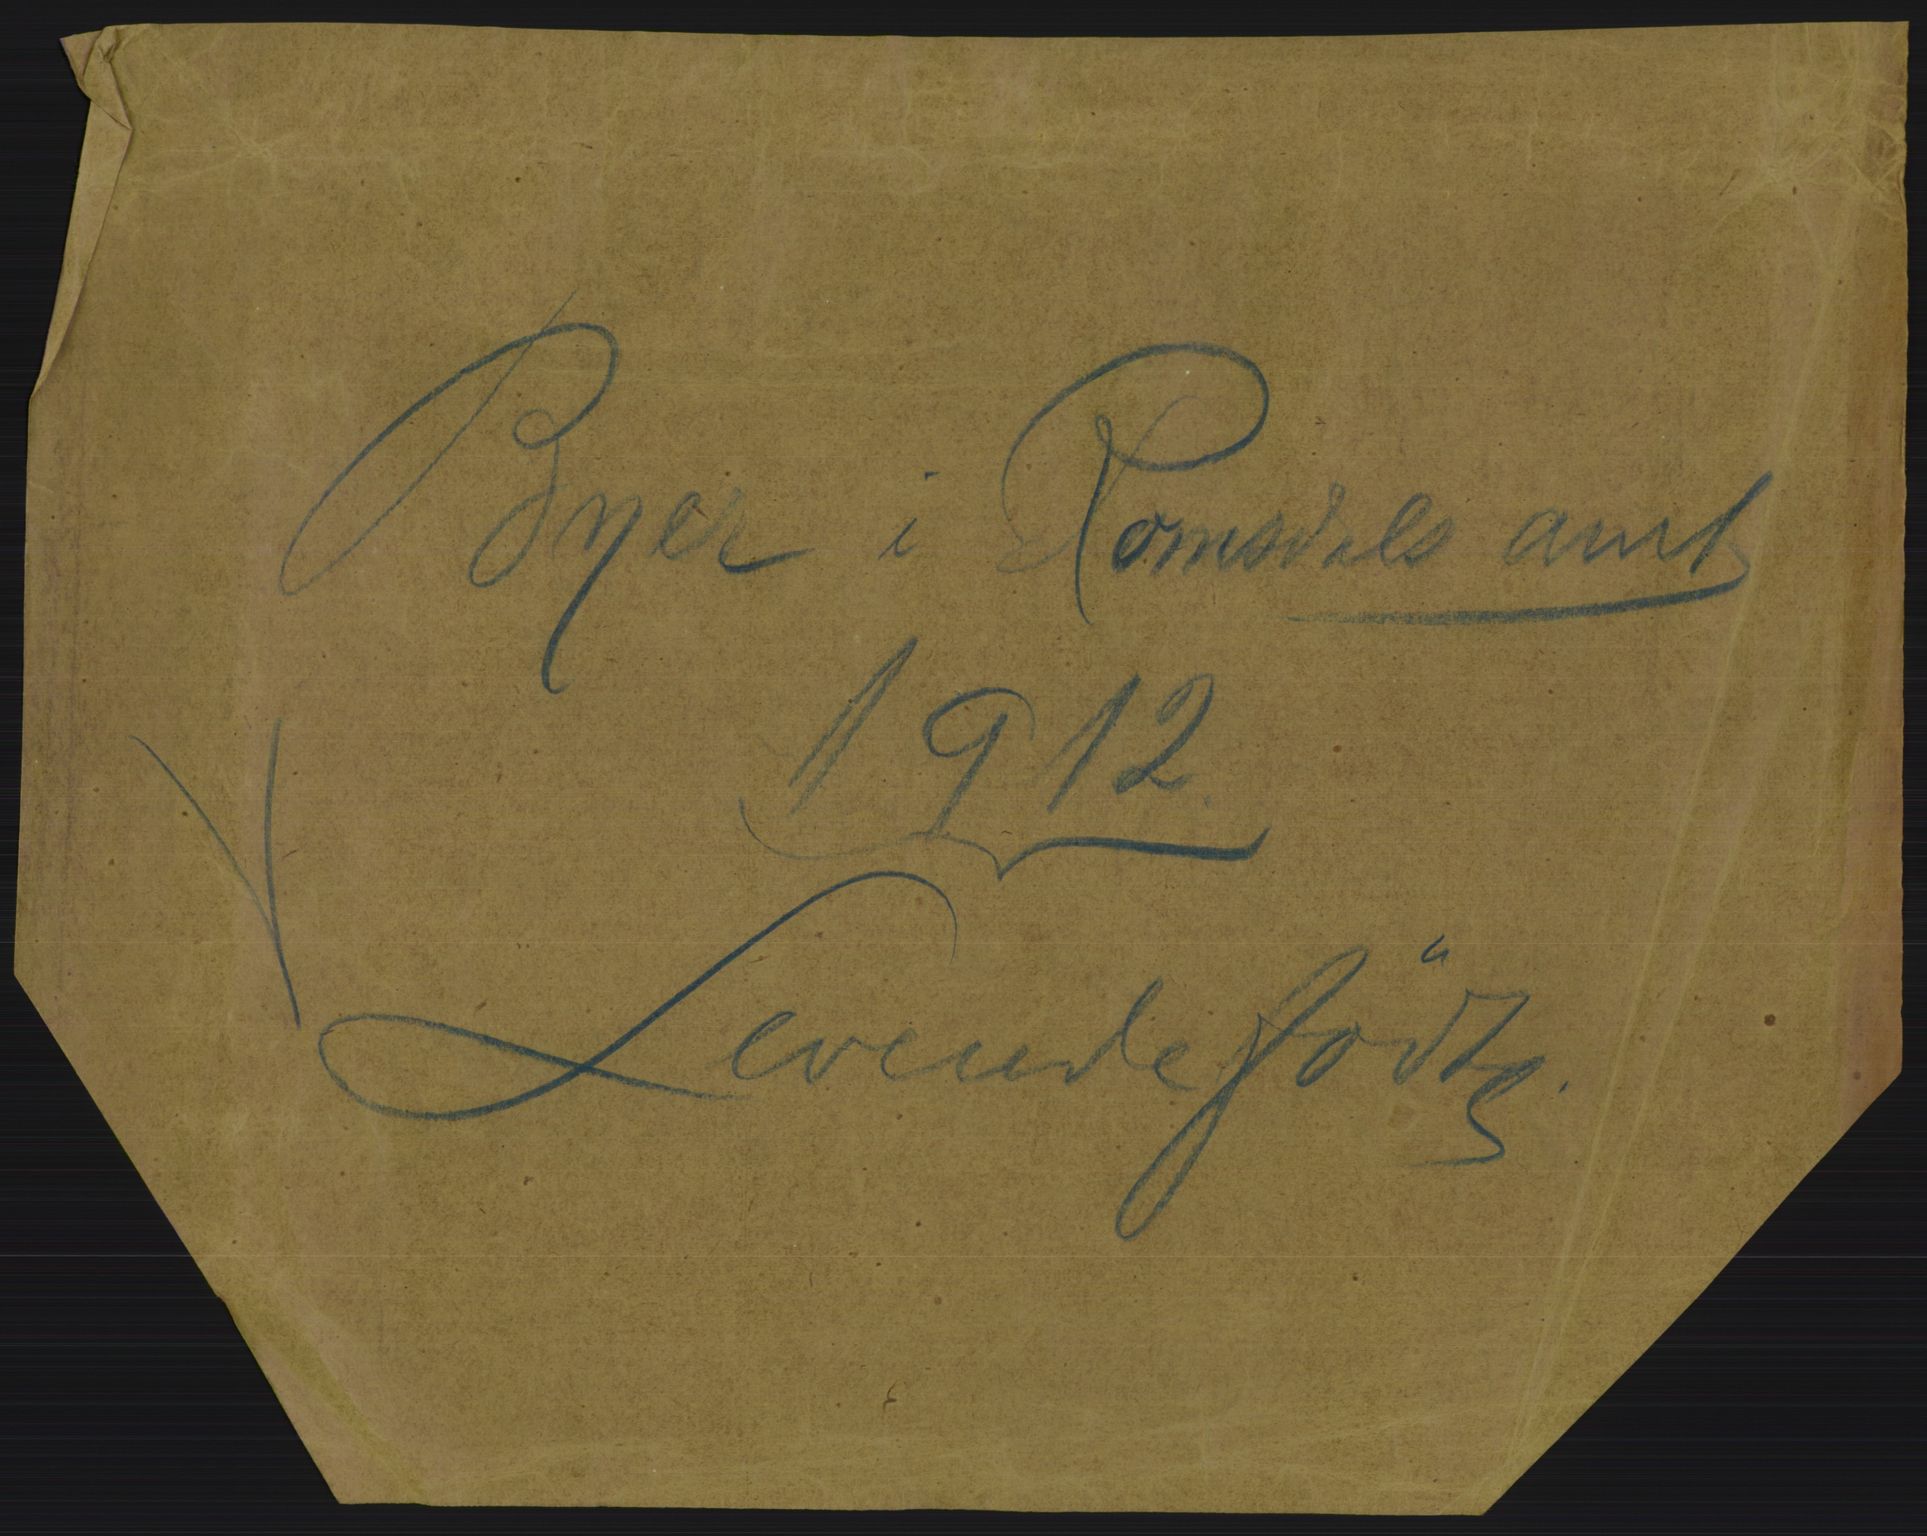 Byer i Romsdals amt
1912.
Levendefödte.